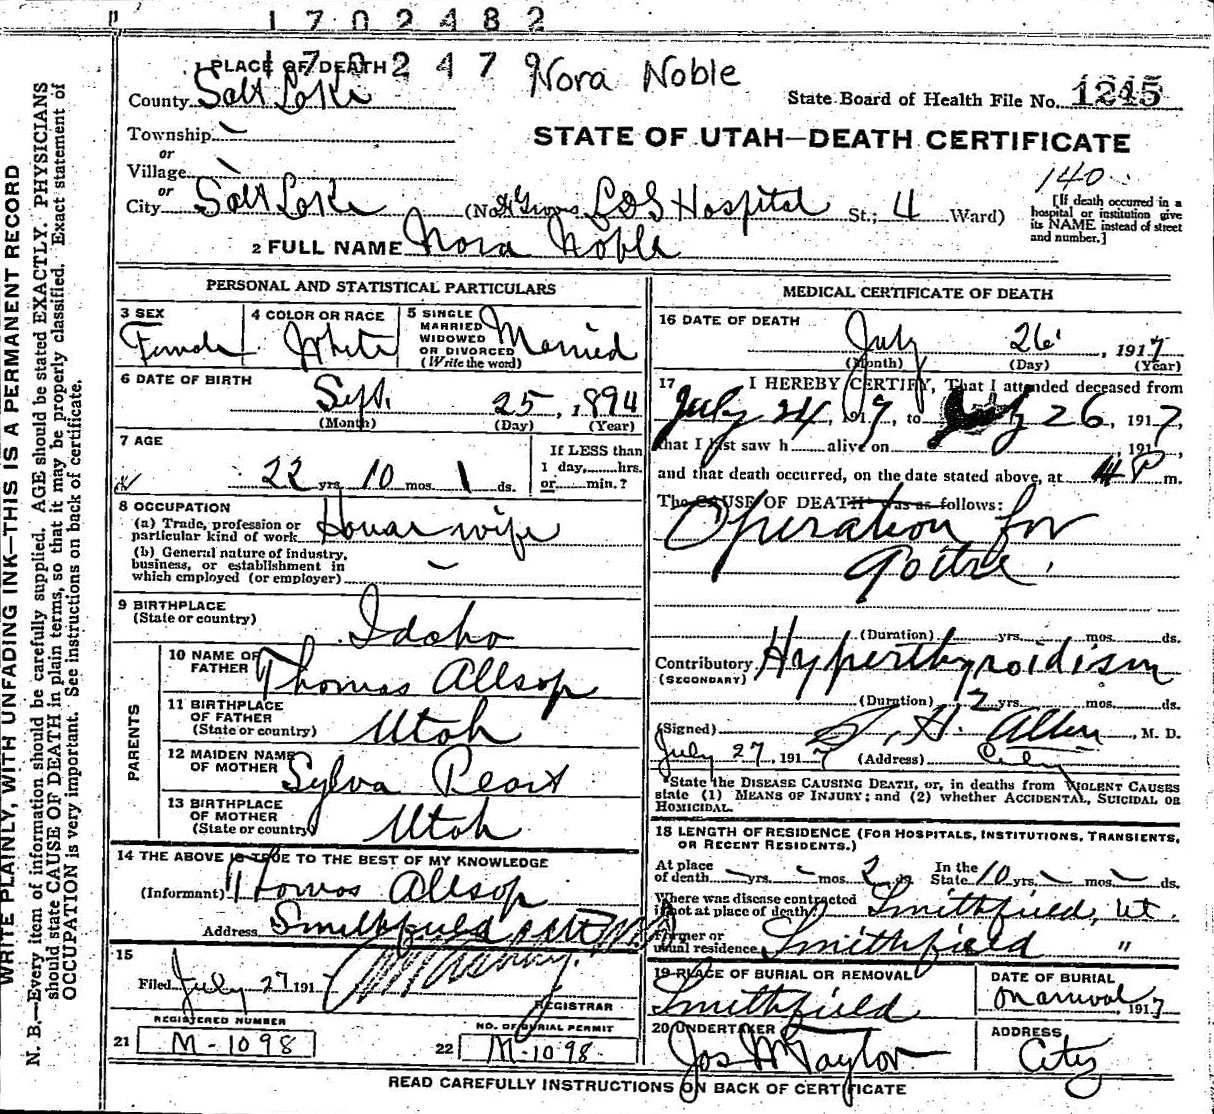 1702482
1702479
Nora Noble
1 PLACE OF DEATH
County Salt Lake
State Board of Health File No. 1245
Township —
STATE OF UTAH—DEATH CERTIFICATE
or
Village
or
140
City Salt Lake (No. LDS Hospital St.; 4 Ward)
[If death occurred in a hospital or institution give its NAME instead of street and number.]
2 FULL NAME Nora Noble
PERSONAL AND STATISTICAL PARTICULARS
3 SEX
Female
4 COLOR OR RACE
White
5 SINGLE MARRIED WIDOWED OR DIVORCED (Write the word)
Married
6 DATE OF BIRTH
Sept. 25, 1894
(Month) (Day) (Year)
7 AGE
22 yrs. 10 mos. 1 ds.
If LESS than 1 day, ......hrs. or ......min.?
8 OCCUPATION
(a) Trade, profession or particular kind of work House wife
(b) General nature of industry, business, or establishment in which employed (or employer) —
9 BIRTHPLACE (State or country) Idaho
PARENTS
10 NAME OF FATHER Thomas Allsop
11 BIRTHPLACE OF FATHER (State or country) Utah
12 MAIDEN NAME OF MOTHER Sylva Peart
13 BIRTHPLACE OF MOTHER (State or country) Utah
14 THE ABOVE IS TRUE TO THE BEST OF MY KNOWLEDGE
(Informant) Thomas Allsop
Address Smithfield Ut
15
Filed July 27 1917
REGISTRAR
REGISTERED NUMBER
21 M-1098
NO. OF BURIAL PERMIT
22 M-1098
MEDICAL CERTIFICATE OF DEATH
16 DATE OF DEATH
July 26, 1917
(Month) (Day) (Year)
17 I HEREBY CERTIFY, That I attended deceased from
July 24, 1917, to July 26, 1917,
that I last saw h alive on , 191 ,
and that death occurred, on the date stated above, at 4 P m.
The CAUSE OF DEATH* was as follows:
Operation for
Goitre.
(Duration) yrs. mos. ds.
Contributory Hyperthyroidism
(SECONDARY)
(Duration) 2 yrs. mos. ds.
(Signed) H. Allen, M. D.
July 27, 1917 (Address) City
*State the DISEASE CAUSING DEATH, or, in deaths from VIOLENT CAUSES
state (1) MEANS OF INJURY; and (2) whether ACCIDENTAL, SUICIDAL OR
HOMICIDAL.
18 LENGTH OF RESIDENCE (FOR HOSPITALS, INSTITUTIONS, TRANSIENTS,
OR RECENT RESIDENTS.)
At place of death — yrs. — mos. 2 ds. In the State 10 yrs. — mos. — ds.
Where was disease contracted if not at place of death? Smithfield, Ut.
Former or usual residence Smithfield "
19 PLACE OF BURIAL OR REMOVAL
Smithfield
DATE OF BURIAL
Removal, 1917
20 UNDERTAKER
Jos Wm Taylor
ADDRESS
City
READ CAREFULLY INSTRUCTIONS ON BACK OF CERTIFICATE
WRITE PLAINLY, WITH UNFADING INK—THIS IS A PERMANENT RECORD
N. B.—Every item of information should be carefully supplied. AGE should be stated EXACTLY. PHYSICIANS
should state CAUSE OF DEATH in plain terms, so that it may be properly classified. Exact statement of
OCCUPATION is very important. See instructions on back of certificate.